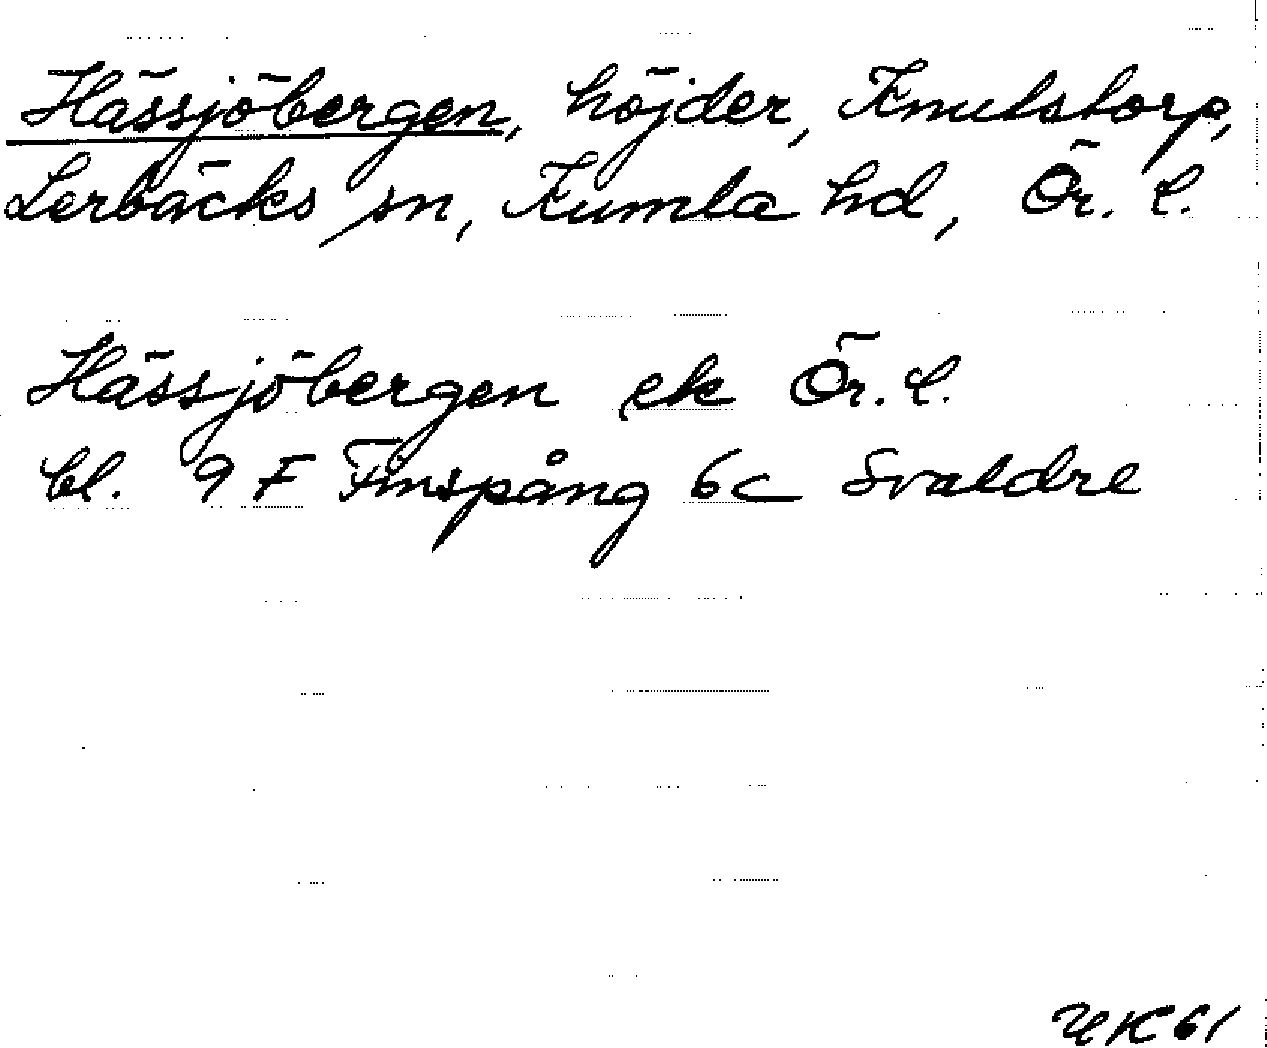 Hässjöbergen, höjder, Knutstorp,
Lerbäcks sn, Kumla hd, Ör. l.
Hässjöbergen ek Ör. l.
bl. 9 F Finspång 6c Svaldre
UK 61